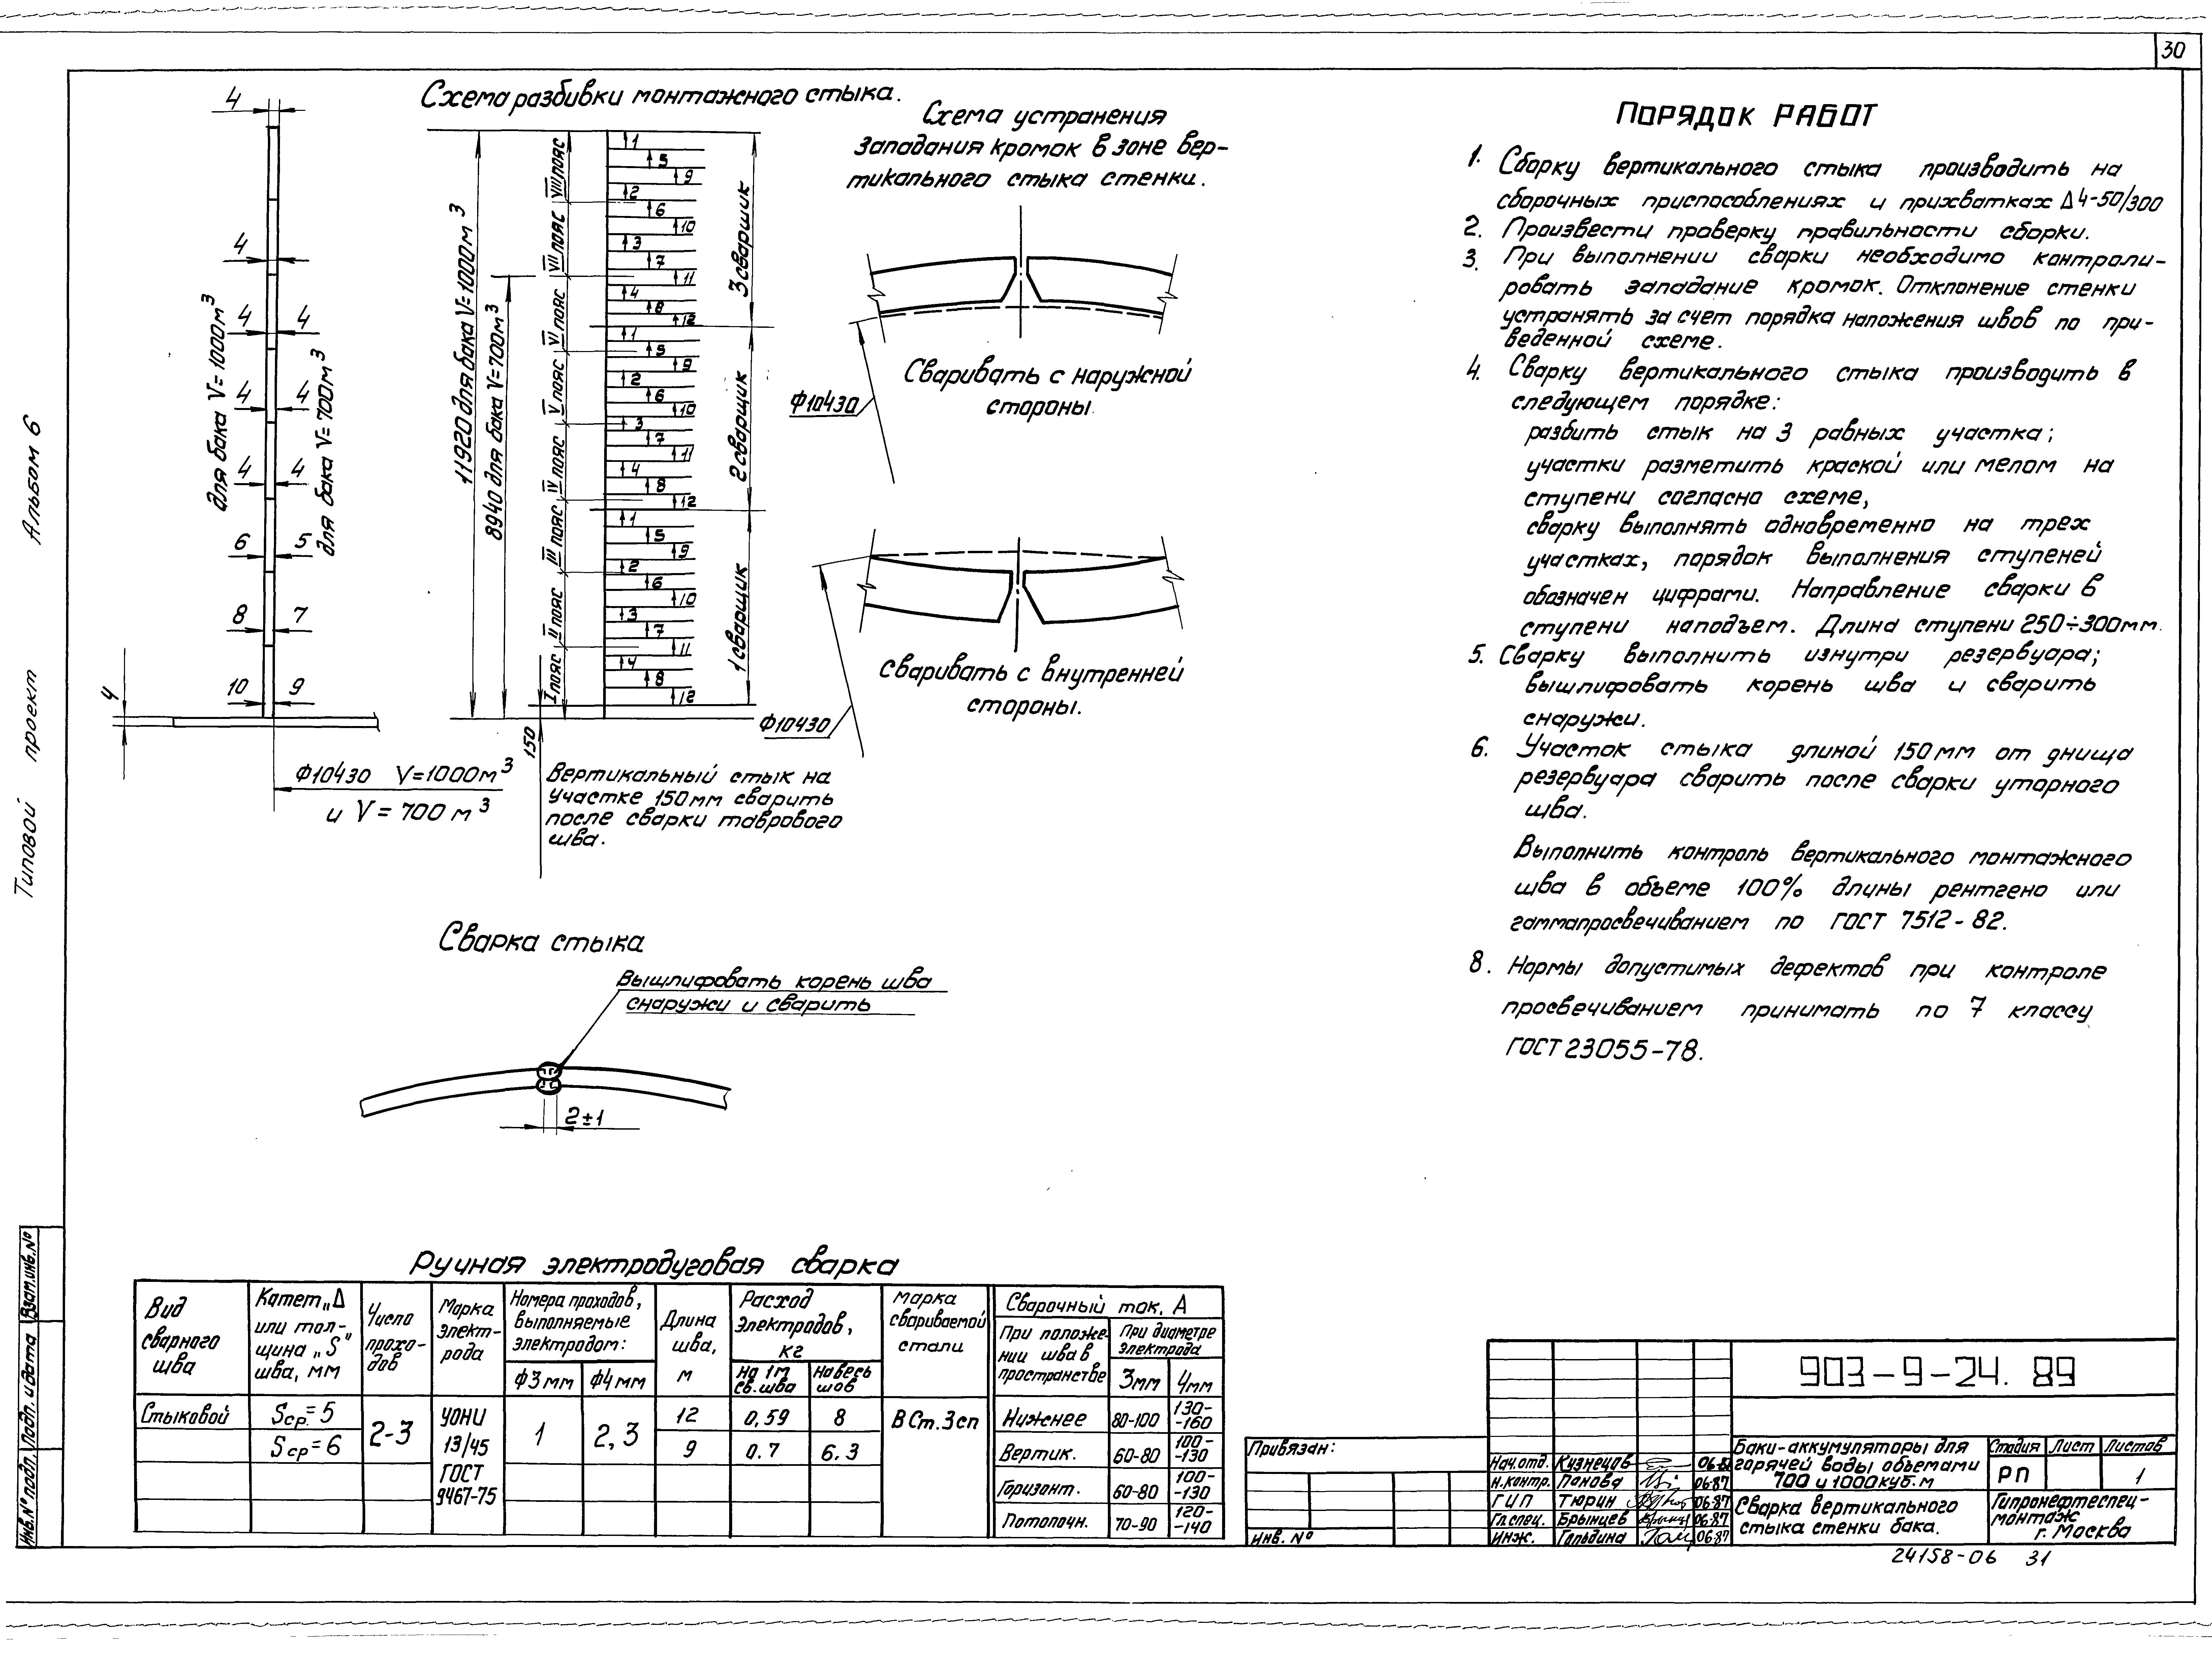 30
Альбом 6
Типовой проект
Схема разбивки монтажного стыка.
4
4
4
4
4
4
4
4
4
6
5
8
7
10
9
4
для бака V=1000м3
для бака V=700м3
Ф10430 V=1000м3
и V=700м3
11920 для бака V=1000м3
8940 для бака V=700м3
VIII пояс
VII пояс
VI пояс
V пояс
IV пояс
III пояс
II пояс
I пояс
1
5
9
2
6
10
3
7
11
4
8
12
1
5
9
2
6
10
3
7
11
4
8
12
1
5
9
2
6
10
3
7
11
4
8
12
3 сварщик
2 сварщик
1 сварщик
150
Вертикальный стык на
участке 150мм сварить
после сварки таврового
шва.
Схема устранения
западания кромок в зоне вер-
тикального стыка стенки.
Ф10430
Сваривать с наружной
стороны.
Ф10430
Сваривать с внутренней
стороны.
Сварка стыка
Вышлифовать корень шва
снаружи и сварить
2±1
Порядок работ
1. Сборку вертикального стыка производить на
сборочных приспособлениях и прихватках Δ4-50/300
2. Произвести проверку правильности сборки.
3. При выполнении сварки необходимо контроли-
ровать западание кромок. Отклонение стенки
устранять за счет порядка наложения швов по при-
веденной схеме.
4. Сварку вертикального стыка производить в
следующем порядке:
разбить стык на 3 равных участка;
участки разметить краской или мелом на
ступени согласно схеме,
сварку выполнять одновременно на трех
участках, порядок выполнения ступеней
обозначен цифрами. Направление сварки в
ступени наподъем. Длина ступени 250÷300мм.
5. Сварку выполнить изнутри резервуара;
вышлифовать корень шва и сварить
снаружи.
6. Участок стыка длиной 150мм от днища
резервуара сварить после сварки уторного
шва.
Выполнить контроль вертикального монтажного
шва в объеме 100% длины рентгено или
гаммапросвечиванием по ГОСТ 7512-82.
8. Нормы допустимых дефектов при контроле
просвечиванием принимать по 7 классу
ГОСТ 23055-78.
Ручная электродуговая сварка
Вид сварного шва
Катет „Δ" или толщина „S" шва, мм
Число прохо-дов
Марка элект-рода
Номера проходов, выполняемые электродом:
Ф3мм
Ф4мм
Длина шва, м
Расход электродов, кг
На 1м св. шва
На весь шов
марка свариваемой стали
Сварочный ток, А
При положе-нии шва в пространстве
При диаметре электрода
3мм
4мм
Стыковой
Sср.=5
Sср=6
2-3
УОНИ 13/45 ГОСТ 9467-75
1
2,3
12
0,59
8
9
0.7
6.3
ВСт.3сп
Нижнее 80-100 130-160
Вертик. 60-80 100-130
Горизонт. 60-80 100-130
Потолочн. 70-90 120-140
Привязан:
Инв. №
903-9-24.89
Нач.отд. Кузнецов
Н.контр. Панова 06-87
ГИП Тюрин 06-87
Гл.спец. Брынцев 06-87
Инж. Гольдина 06-87
Баки-аккумуляторы для
горячей воды объемами
700 и 1000 куб.м
Стадия Лист Листов
РП 1
Сварка вертикального
стыка стенки бака.
Гипронефтеспец-
монтаж
г. Москва
24158-06 31
Инв.№ подл.
Подп. и дата
Взам.инв.№